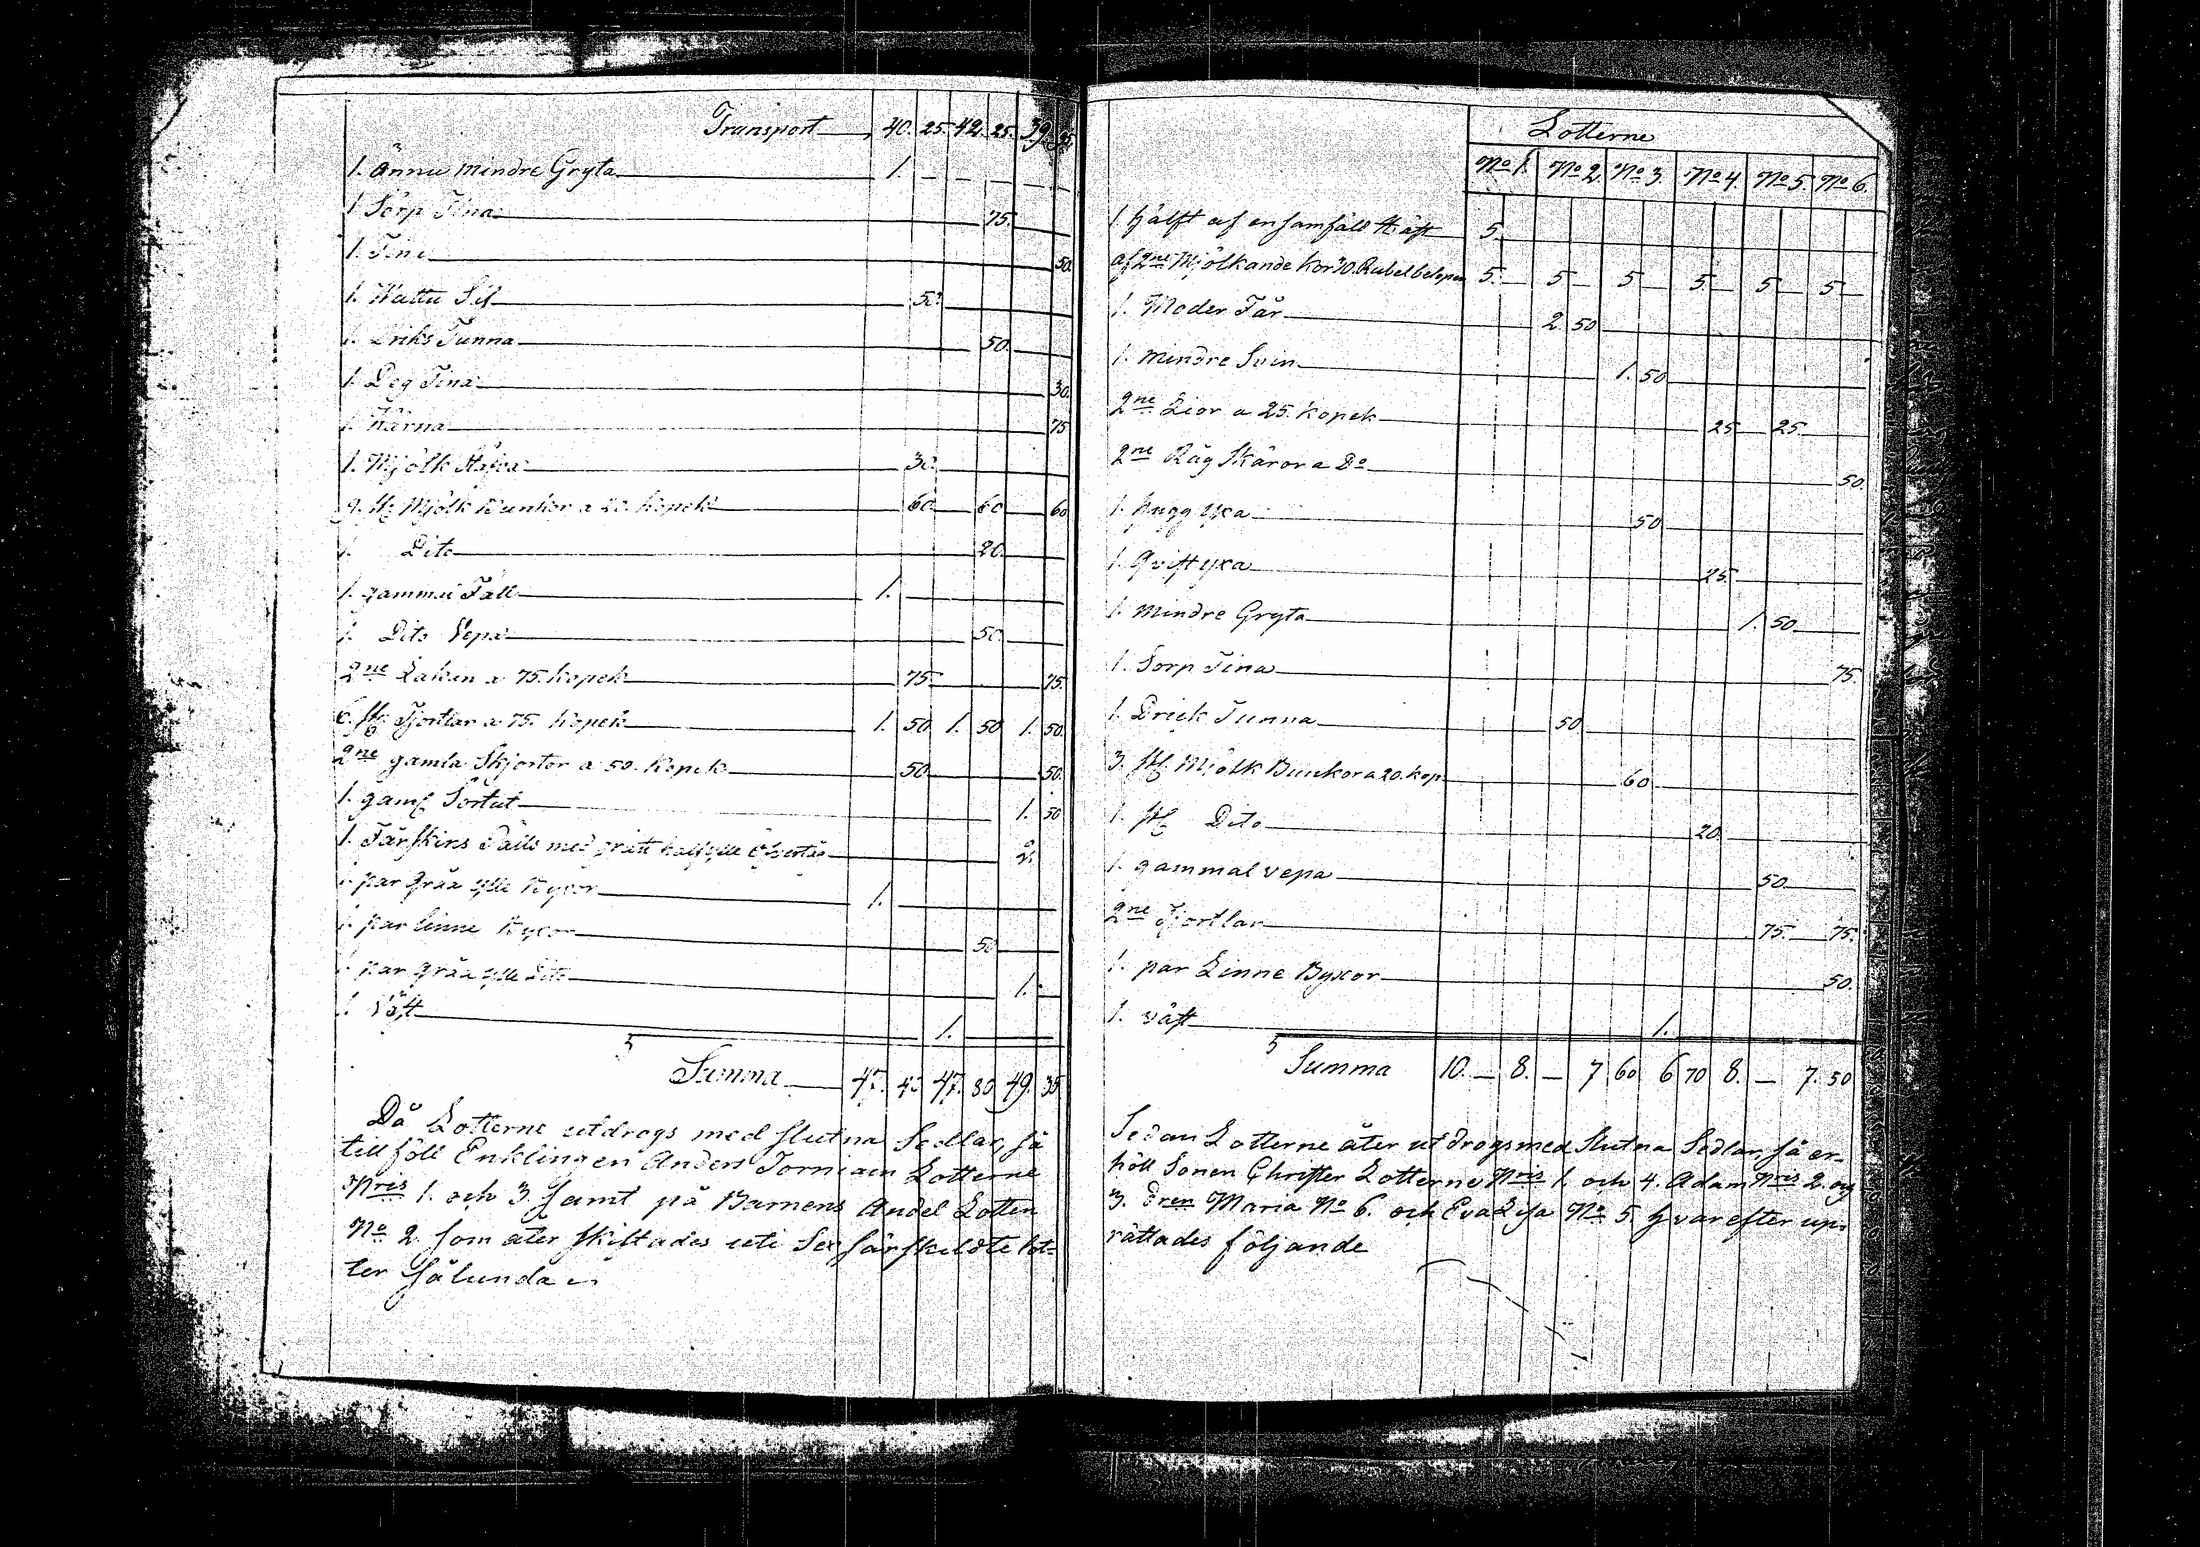 Transport 40. 25. 42. 25. 39.
1. ännu mindre Gryta 1.
1. Sörp Tina 75.
1. Tina 50.
1. Wattu
1. Driks Tunna 50.
1. Deg Tina 30.
1. Kärna 75
1. Mjölk 30.
9. st Mjölk Bunkor a 20. Kopek 60 60 60
1. Dito 20.
1. gammu Fäll 1.
1. Dito Vepa 50
2ne Lakan a 75. Kopek 75. 75.
6. st Tjortlar a 75. Kopek 1. 50 1. 50 1. 50.
2ne gamla Skjortor a 50. Kopek 50. 50.
1. gaml Sörtut 1. 50
1. Fårskins med grått halfylle 2.
1. par gråa ylle Byxor 1.
1. par linne Byxor 50
1. par gråa ylle Dito 1.
1. Väft 1.
Summa 47. 47. 49. 35
Då Lotterne utdrogs med slutna Sedlar, så
tillföll Enklingen Anders Torniain Lotterne
Nris 1. och 3. samt på Barnens Andel Lotten
No 2. som åter skiftades uti Sex särskildte lot-
ter sålunda
Lotterne
No 1. No 2. No 3. No 4. No 5. No 6.
1. hälft af en samfäld Häst 5.
af 2ne Mjölkande Kor 30. Rubel belopen 5. 5 5 5. 5 5
1. Moder Får 2. 50
1. mindre Svin 1. 50
2ne Lior a 25. Kopek 25 25.
2ne Råg Skäror a Do 50.
1. hugg yxa 50
1. qvist yxa 25.
1. mindre Gryta 1. 50
1. Sörp Tina 75.
1. Drick Tunna 50
3. st Mjölk Bunkor a 20. kop. 60
1. st Dito 20.
1. gammal vepa 50
2ne Tjortlar 75. 75.
1. par Linne Byxor 50.
1. väft 1.
Summa 10. — 8. — 7 60 6 70 8. — 7. 50
Sedan Lotterne åter utdrogs med Slutna Sedlar, så er-
höll Sonen Christer Lotterne Nris 1. och 4. Adam Nris 2. og
3. dren Maria No 6. och Eva Lisa No 5. hvarefter up-
rättades följande